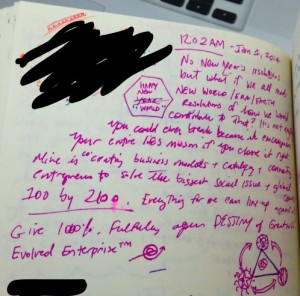 12:02AM - Jan 1, 2014
No New Year's resolutions
but what if we all made
HAPPY
NEW
YEAR
WORLD
NEW WORLD / ERA / EARTH
Resolutions of how we would
contribute to that? It's not
You could even break because it encompasses
Your entire life's mission if you chose it right
Mine is "creating business models + catalog + connecting
entrepreneurs to solve the biggest social issue + global
100 by 2100. Everything for me can line up against
Give 100%. Fulfilling upon DESTINY of Greatness
Evolved Enterprise™